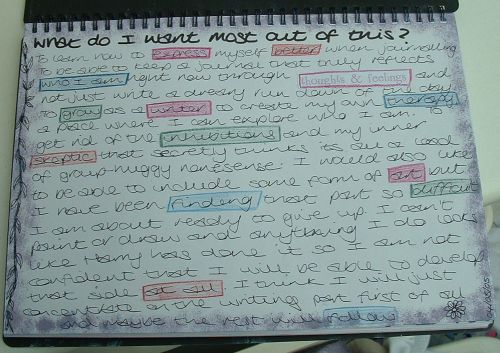 What do I want most out of this?
To learn how to express myself better when journalling
To be able to keep a journal that truly reflects
who I am right now through thoughts & feelings and
not just write a dreary run down of the day
To grow as a writer to create my own therapy
a place where I can explore who I am. To
get rid of the inhibitions and my inner
skeptic that secretly thinks its all a load
of group-huggy nonesense. I would also like
to be able to include some form of art but
I have been finding that part so difficult
I am about ready to give up. I can't
paint or draw and anything I do looks
like Harry has done it so I am not
confident that I will be able to develop
that side at all. I think I will just
concentrate on the writing part first of all
and maybe the rest will follow